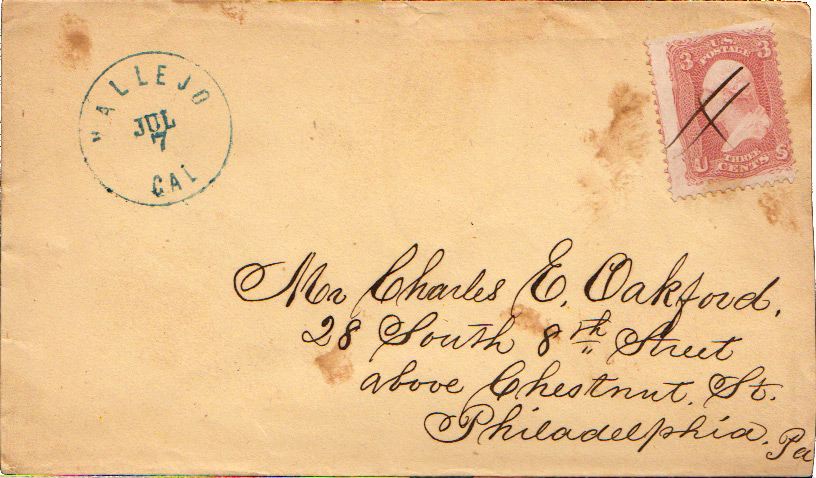 VALLEJO
JUL
7
CAL
3 U.S. 3
POSTAGE
THREE
U CENTS S
Mr Charles E. Oakford.
28 South 8th Street
above Chestnut. St.
Philadelphia. Pa